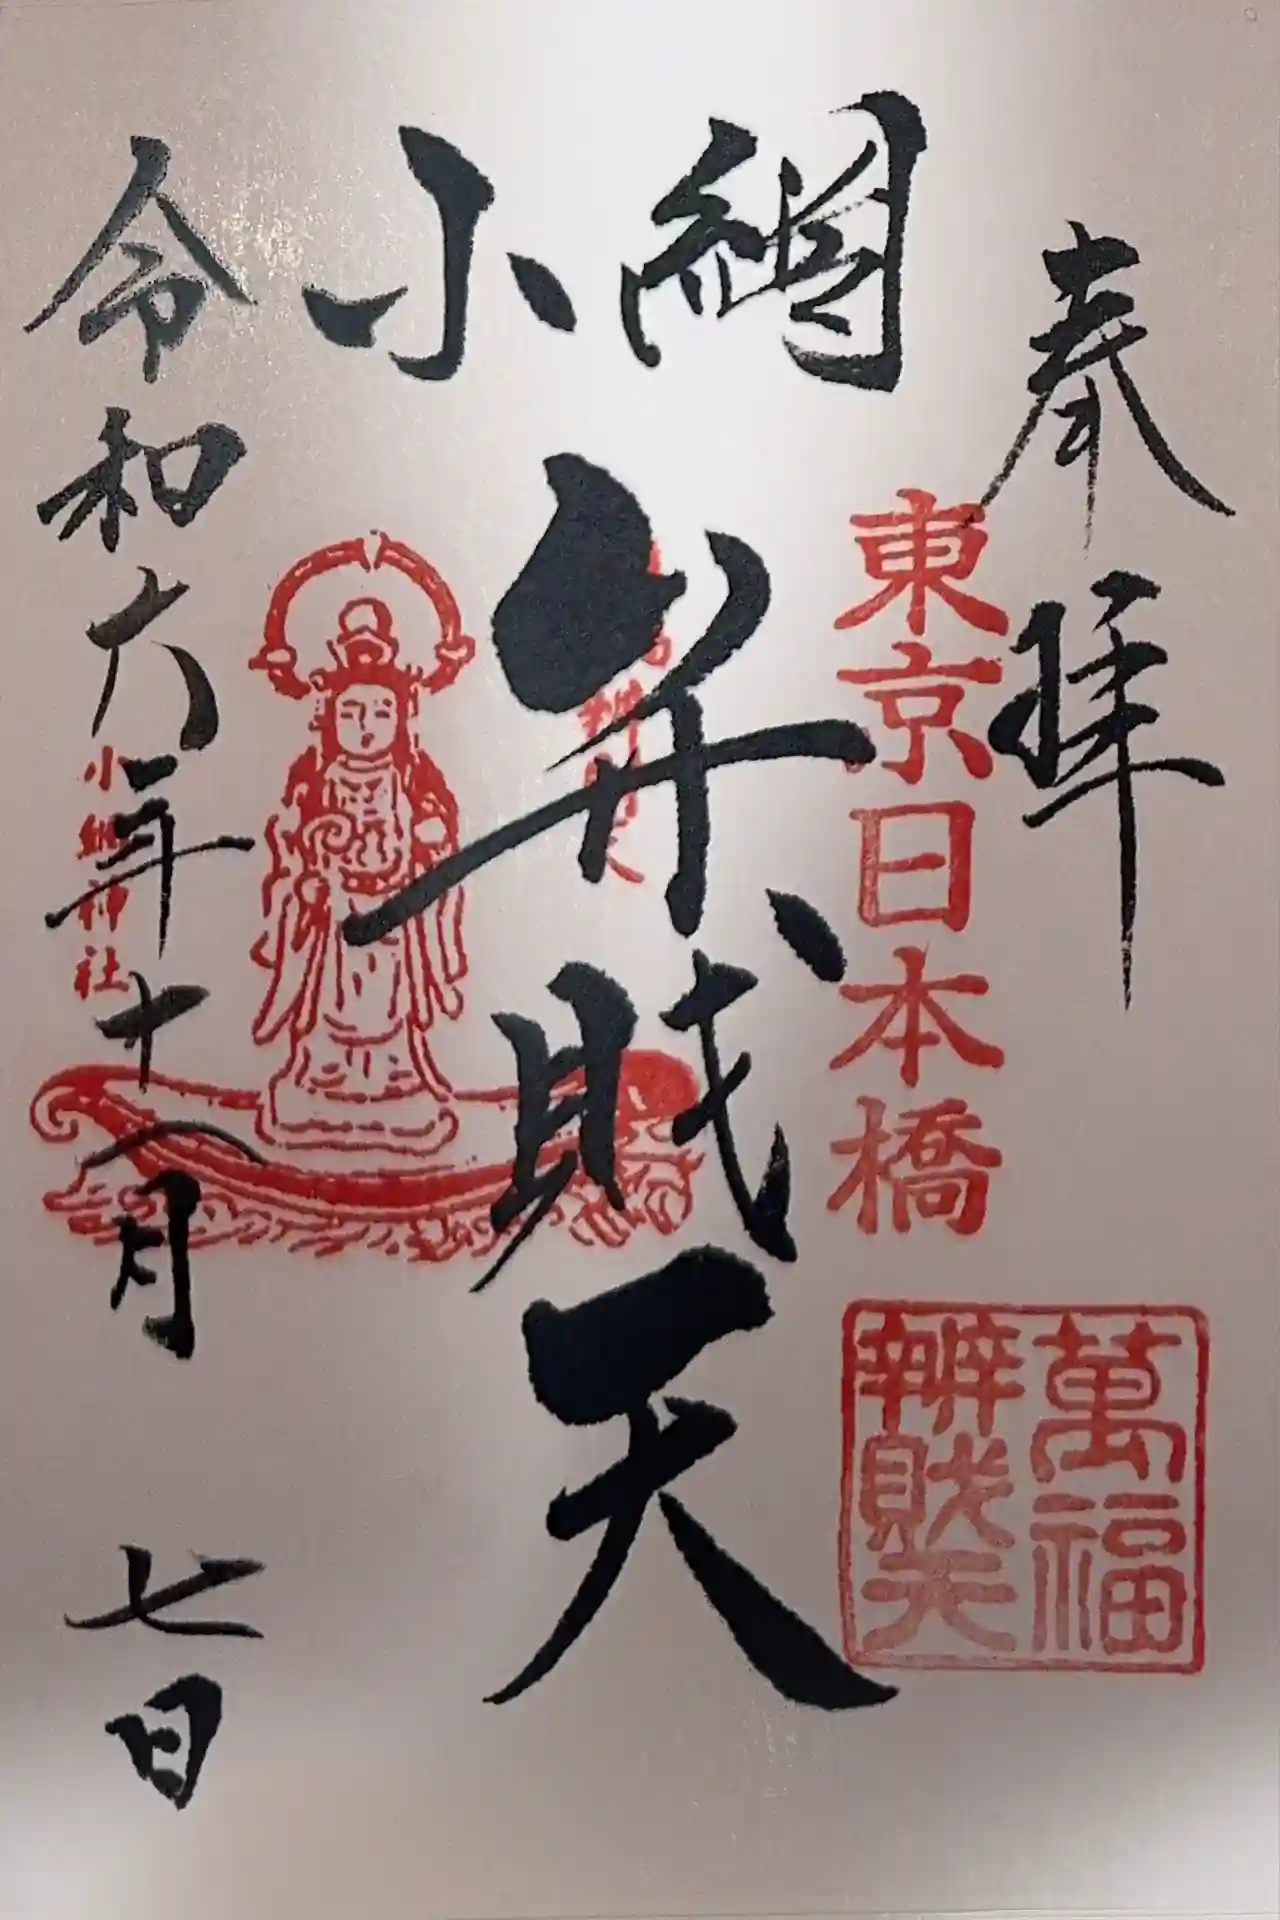 奉拝
東京日本橋
萬福
辨財天
小網
弁財天
小網神社
令和六年十一月七日